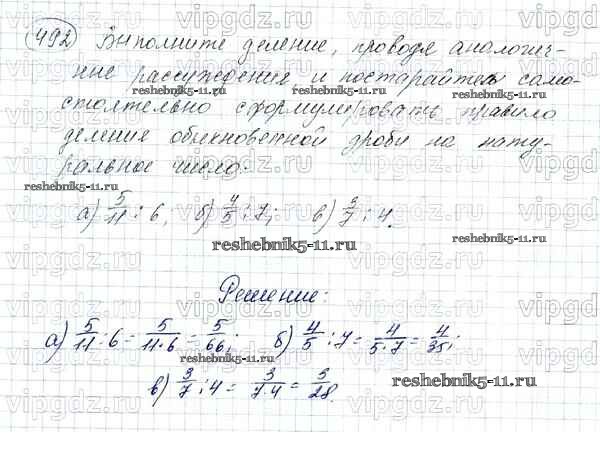 492 Выполните деление, проводя аналогич-
ные рассуждения и постарайтесь само-
стоятельно сформулировать правило
деления обыкновенной дроби на нату-
ральное число.
reshebnik5-11.ru
а) 5/11 : 6; б) 4/5 : 7; в) 3/7 : 4.
reshebnik5-11.ru
Решение:
а) 5/11 : 6 = 5/11·6 = 5/66; б) 4/5 : 7 = 4/5·7 = 4/35;
в) 3/7 : 4 = 3/7·4 = 3/28.
reshebnik5-11.ru
vipgdz.ru